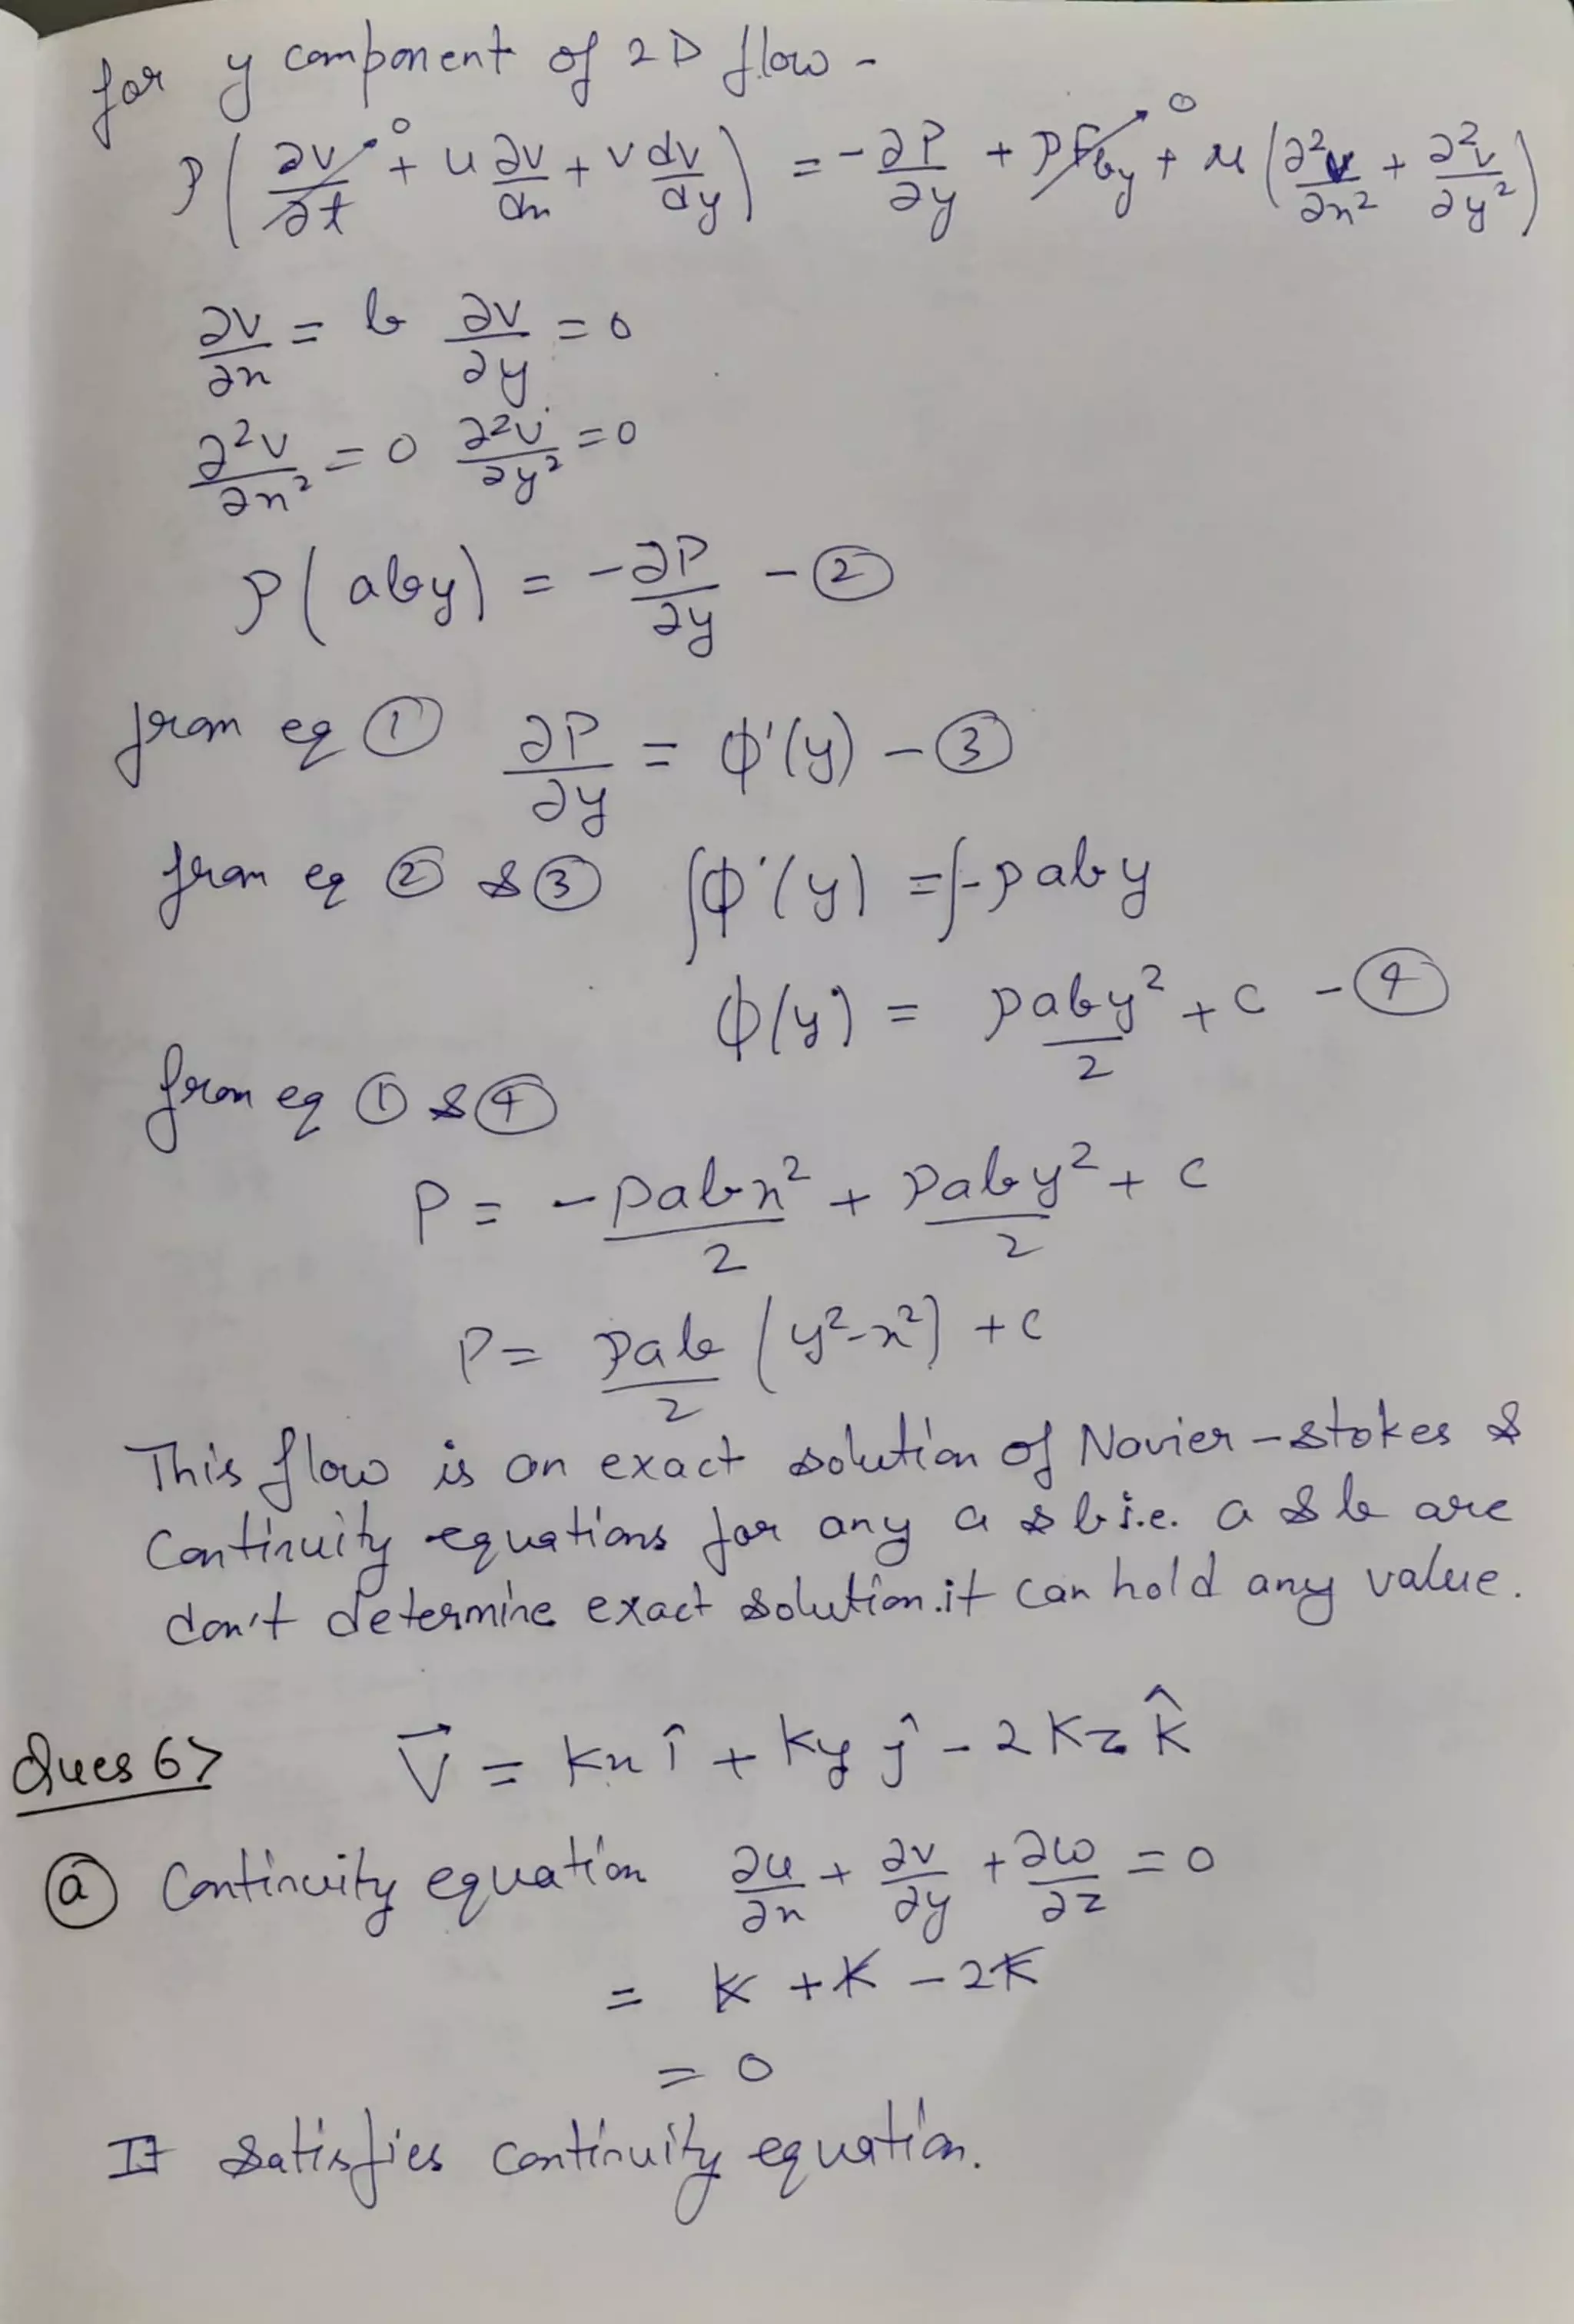 for y component of 2D flow -
ρ( ∂v/∂t→0 + u ∂v/dx + v dv/dy ) = -∂P/∂y + ρFby→0 + μ( ∂²v/∂x² + ∂²v/∂y² )
∂v/∂x = b   ∂v/∂y = 0
∂²v/∂x² = 0   ∂²v/∂y² = 0
ρ( aby) = -∂P/∂y - ②
from eq ①   ∂P/∂y = ϕ'(y) - ③
from eq ② & ③   ∫ϕ'(y) = ∫-ρaby
ϕ(y) = ρaby²/2 + c - ④
from eq ① & ④
P = -ρabx²/2 + ρaby²/2 + c
P = ρab/2 (y²-x²) + c
This flow is an exact solution of Navier-stokes &
Continuity equations for any a & b i.e. a & b are
don't determine exact solution.it can hold any value.
Ques 6>   V⃗ = Kx î + Ky ĵ - 2Kz k̂
ⓐ Continuity equation   ∂u/∂x + ∂v/∂y + ∂w/∂z = 0
= K + K - 2K
= 0
It satisfies continuity equation.